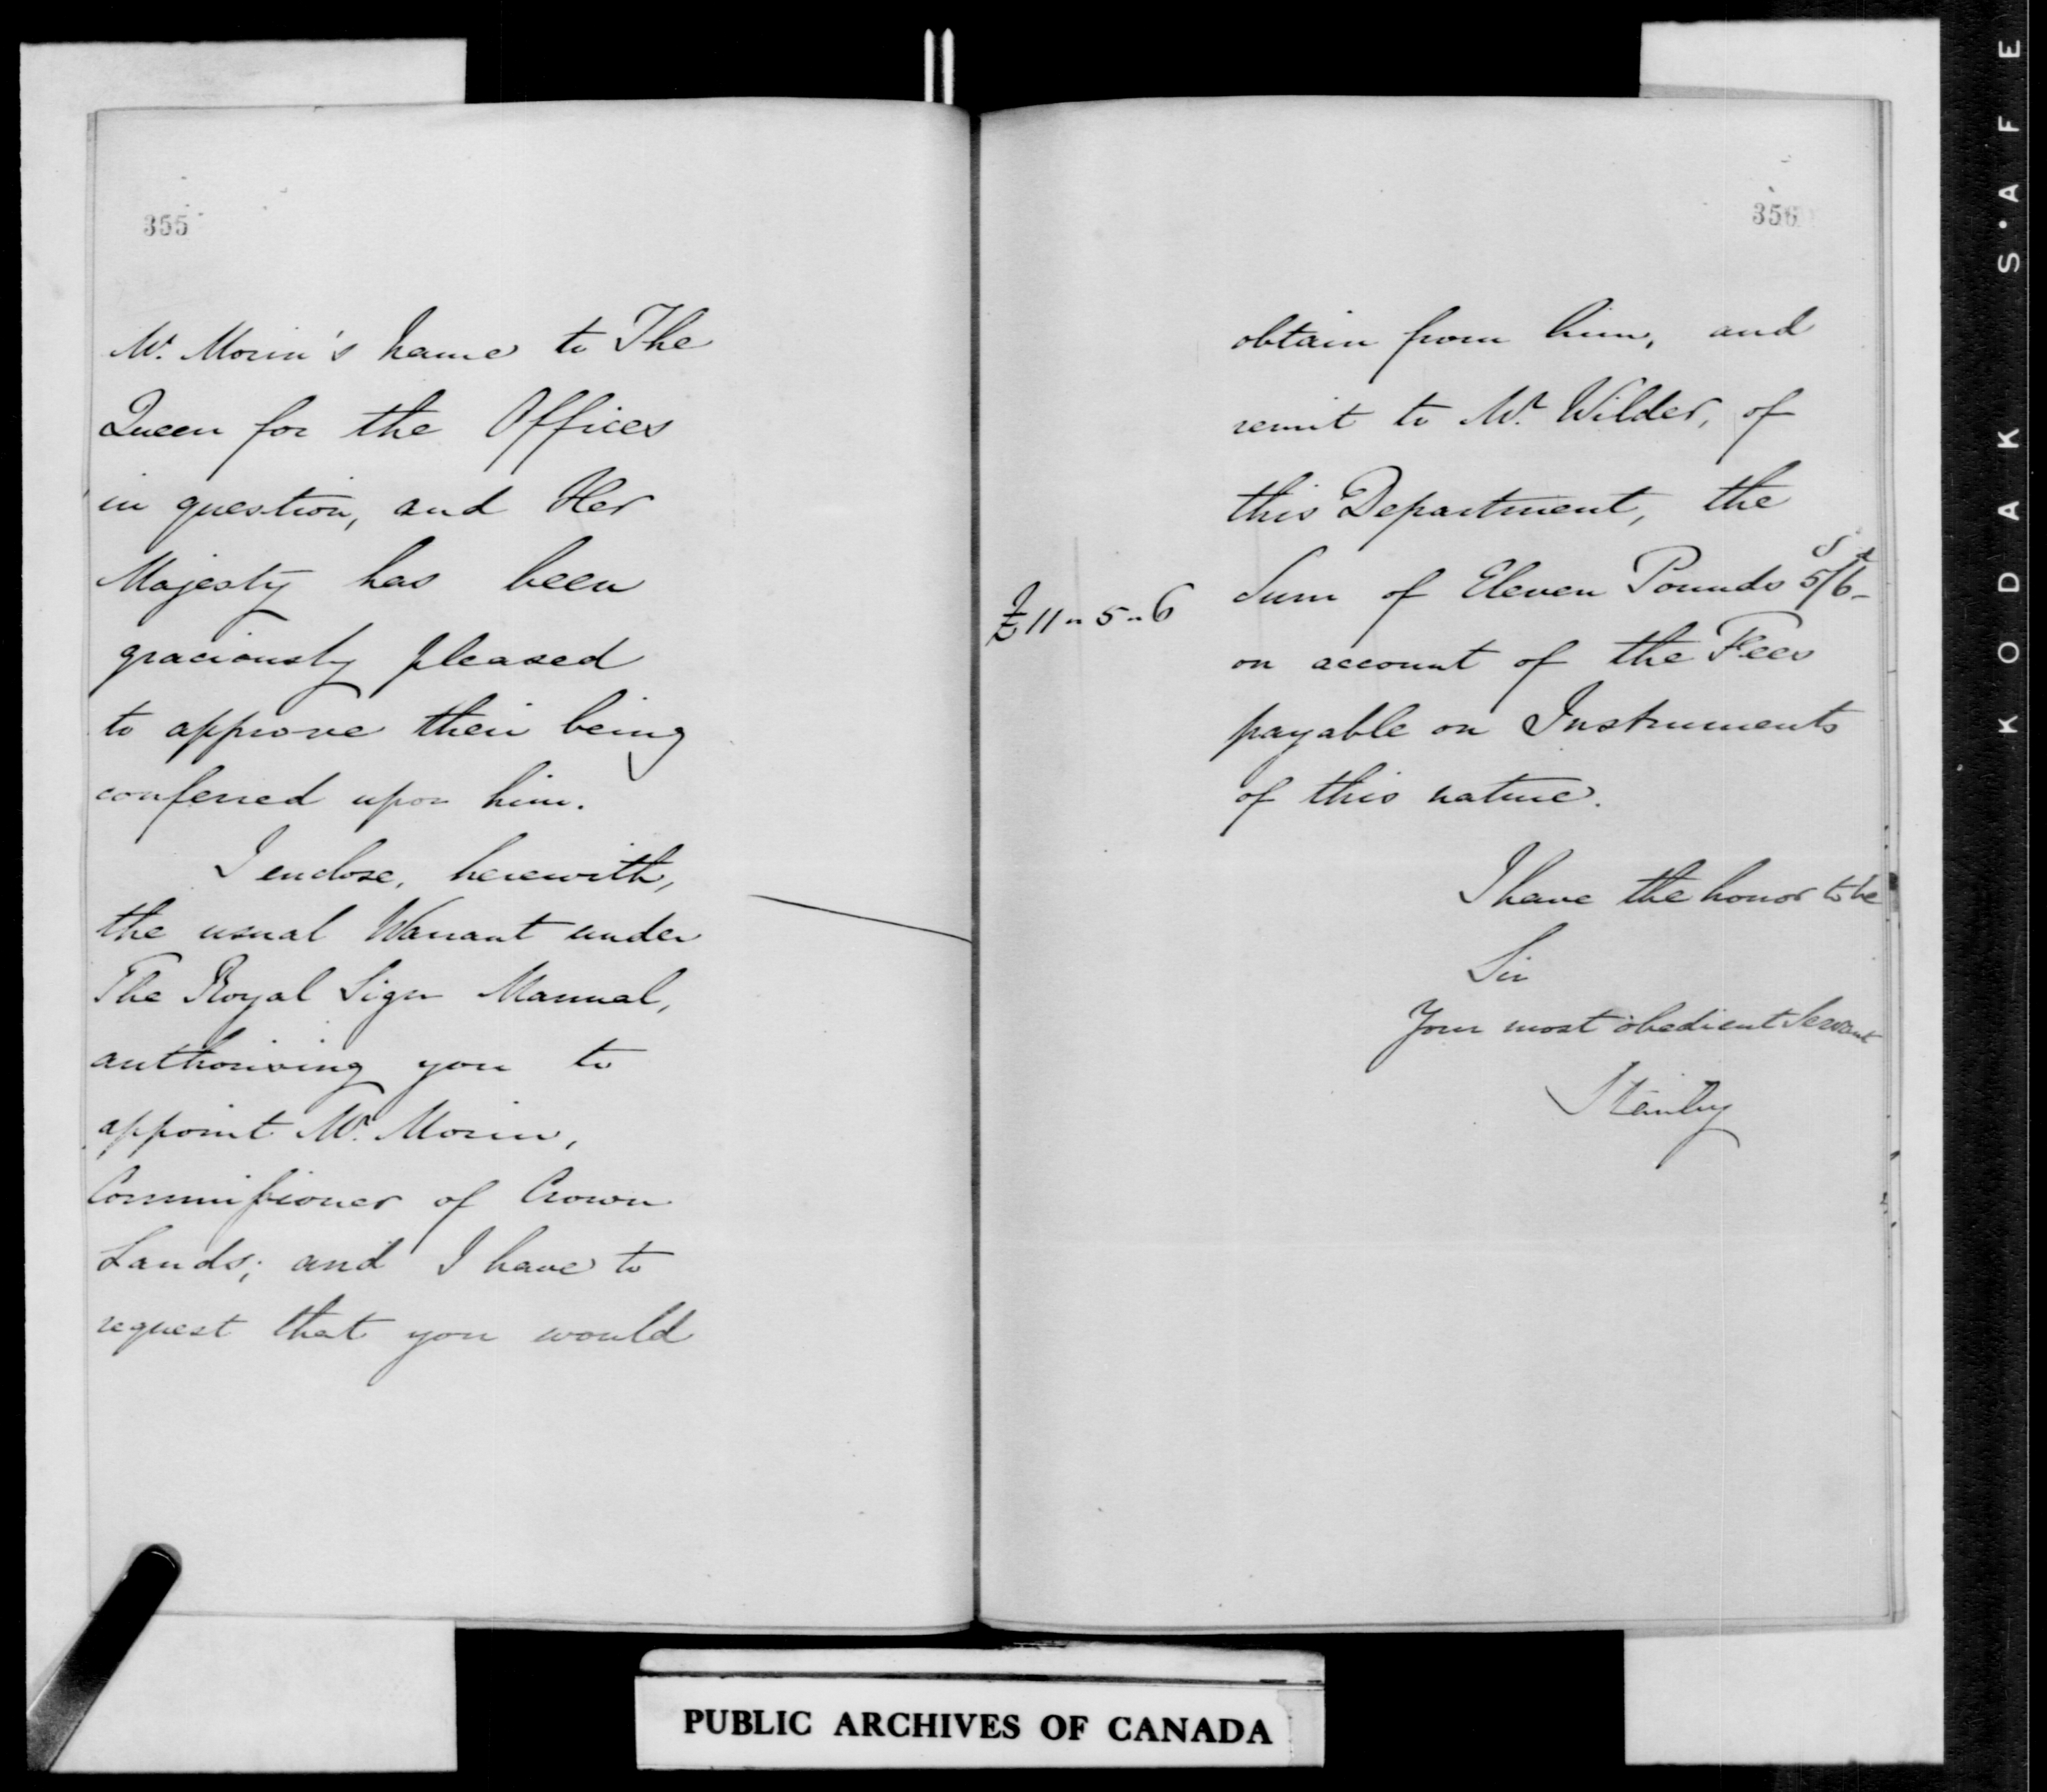 355
Mr. Morin's name to The
Queen for the Offices
in question, and Her
Majesty has been
graciously pleased
to approve their being
conferred upon him.
I enclose, herewith,
the usual Warrant under
The Royal Sign Manual,
authorising you to
appoint Mr. Morin,
Commissioner of Crown
Lands; and I have to
request that you would
356
obtain from him, and
remit to Mr. Wilder, of
this Department, the
£11 " 5 " 6
Sum of Eleven Pounds 5s/6d
on account of the Fees
payable on Instruments
of this nature.
I have the honor to be
Sir
Your most obedient Servant
Stanley
PUBLIC ARCHIVES OF CANADA
KODAK S·AFE